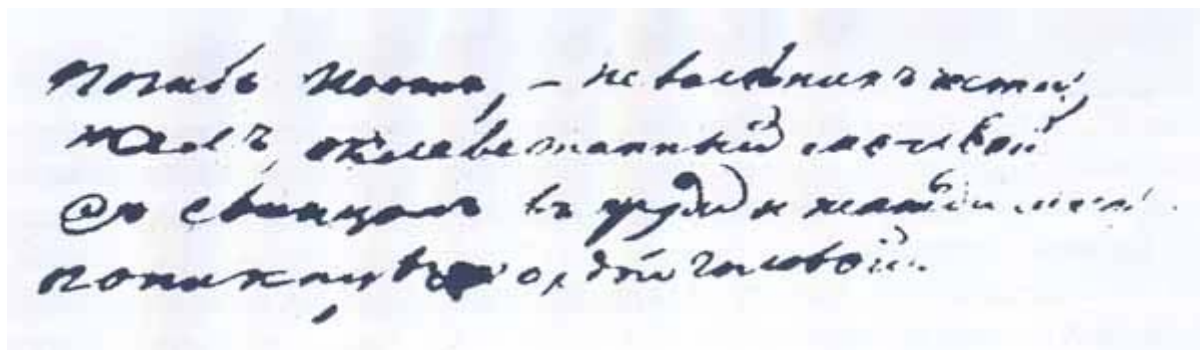 Погибъ Поэтъ, – невольникъ чести,
Палъ, оклеветанный молвой
Съ свинцомъ въ груди и жаждой мести
Поникнувъ гордой головой.